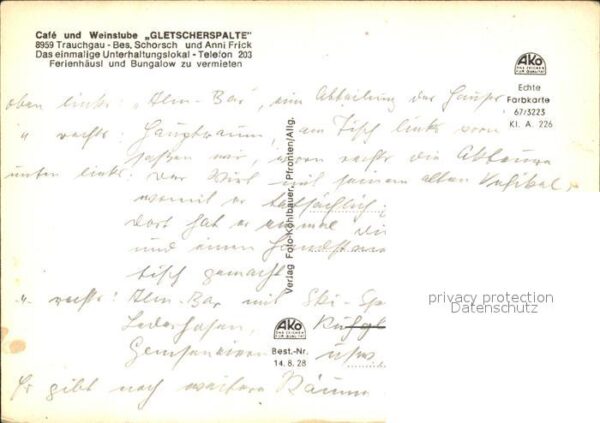 Café und Weinstube „GLETSCHERSPALTE"
8959 Trauchgau - Bes. Schorsch und Anni Frick
Das einmalige Unterhaltungslokal - Telefon 203
Ferienhäusl und Bungalow zu vermieten
AKO
DAS ZEICHEN
FÜR QUALITÄT
Echte
Farbkarte
67/3223
Kl. A. 226
oben links: „Alm-Bar", eine Abteilung des Hauses
" rechts: Hauptraum, am Tisch links vorn
saßen wir, vorn rechts die
unten links: Der Wirt mit seinem alten
womit er tatsächlich
dort hat er einmal
und einen Handstand
Tisch gemacht
" rechts: Alm-Bar mit Ski-
Lederhosen,
usw
Es gibt noch weitere Räume
Verlag Foto-Kohlbauer, Pfronten/Allg.
AKO
DAS ZEICHEN
FÜR QUALITÄT
Best.-Nr.
14. 8. 28
privacy protection
Datenschutz